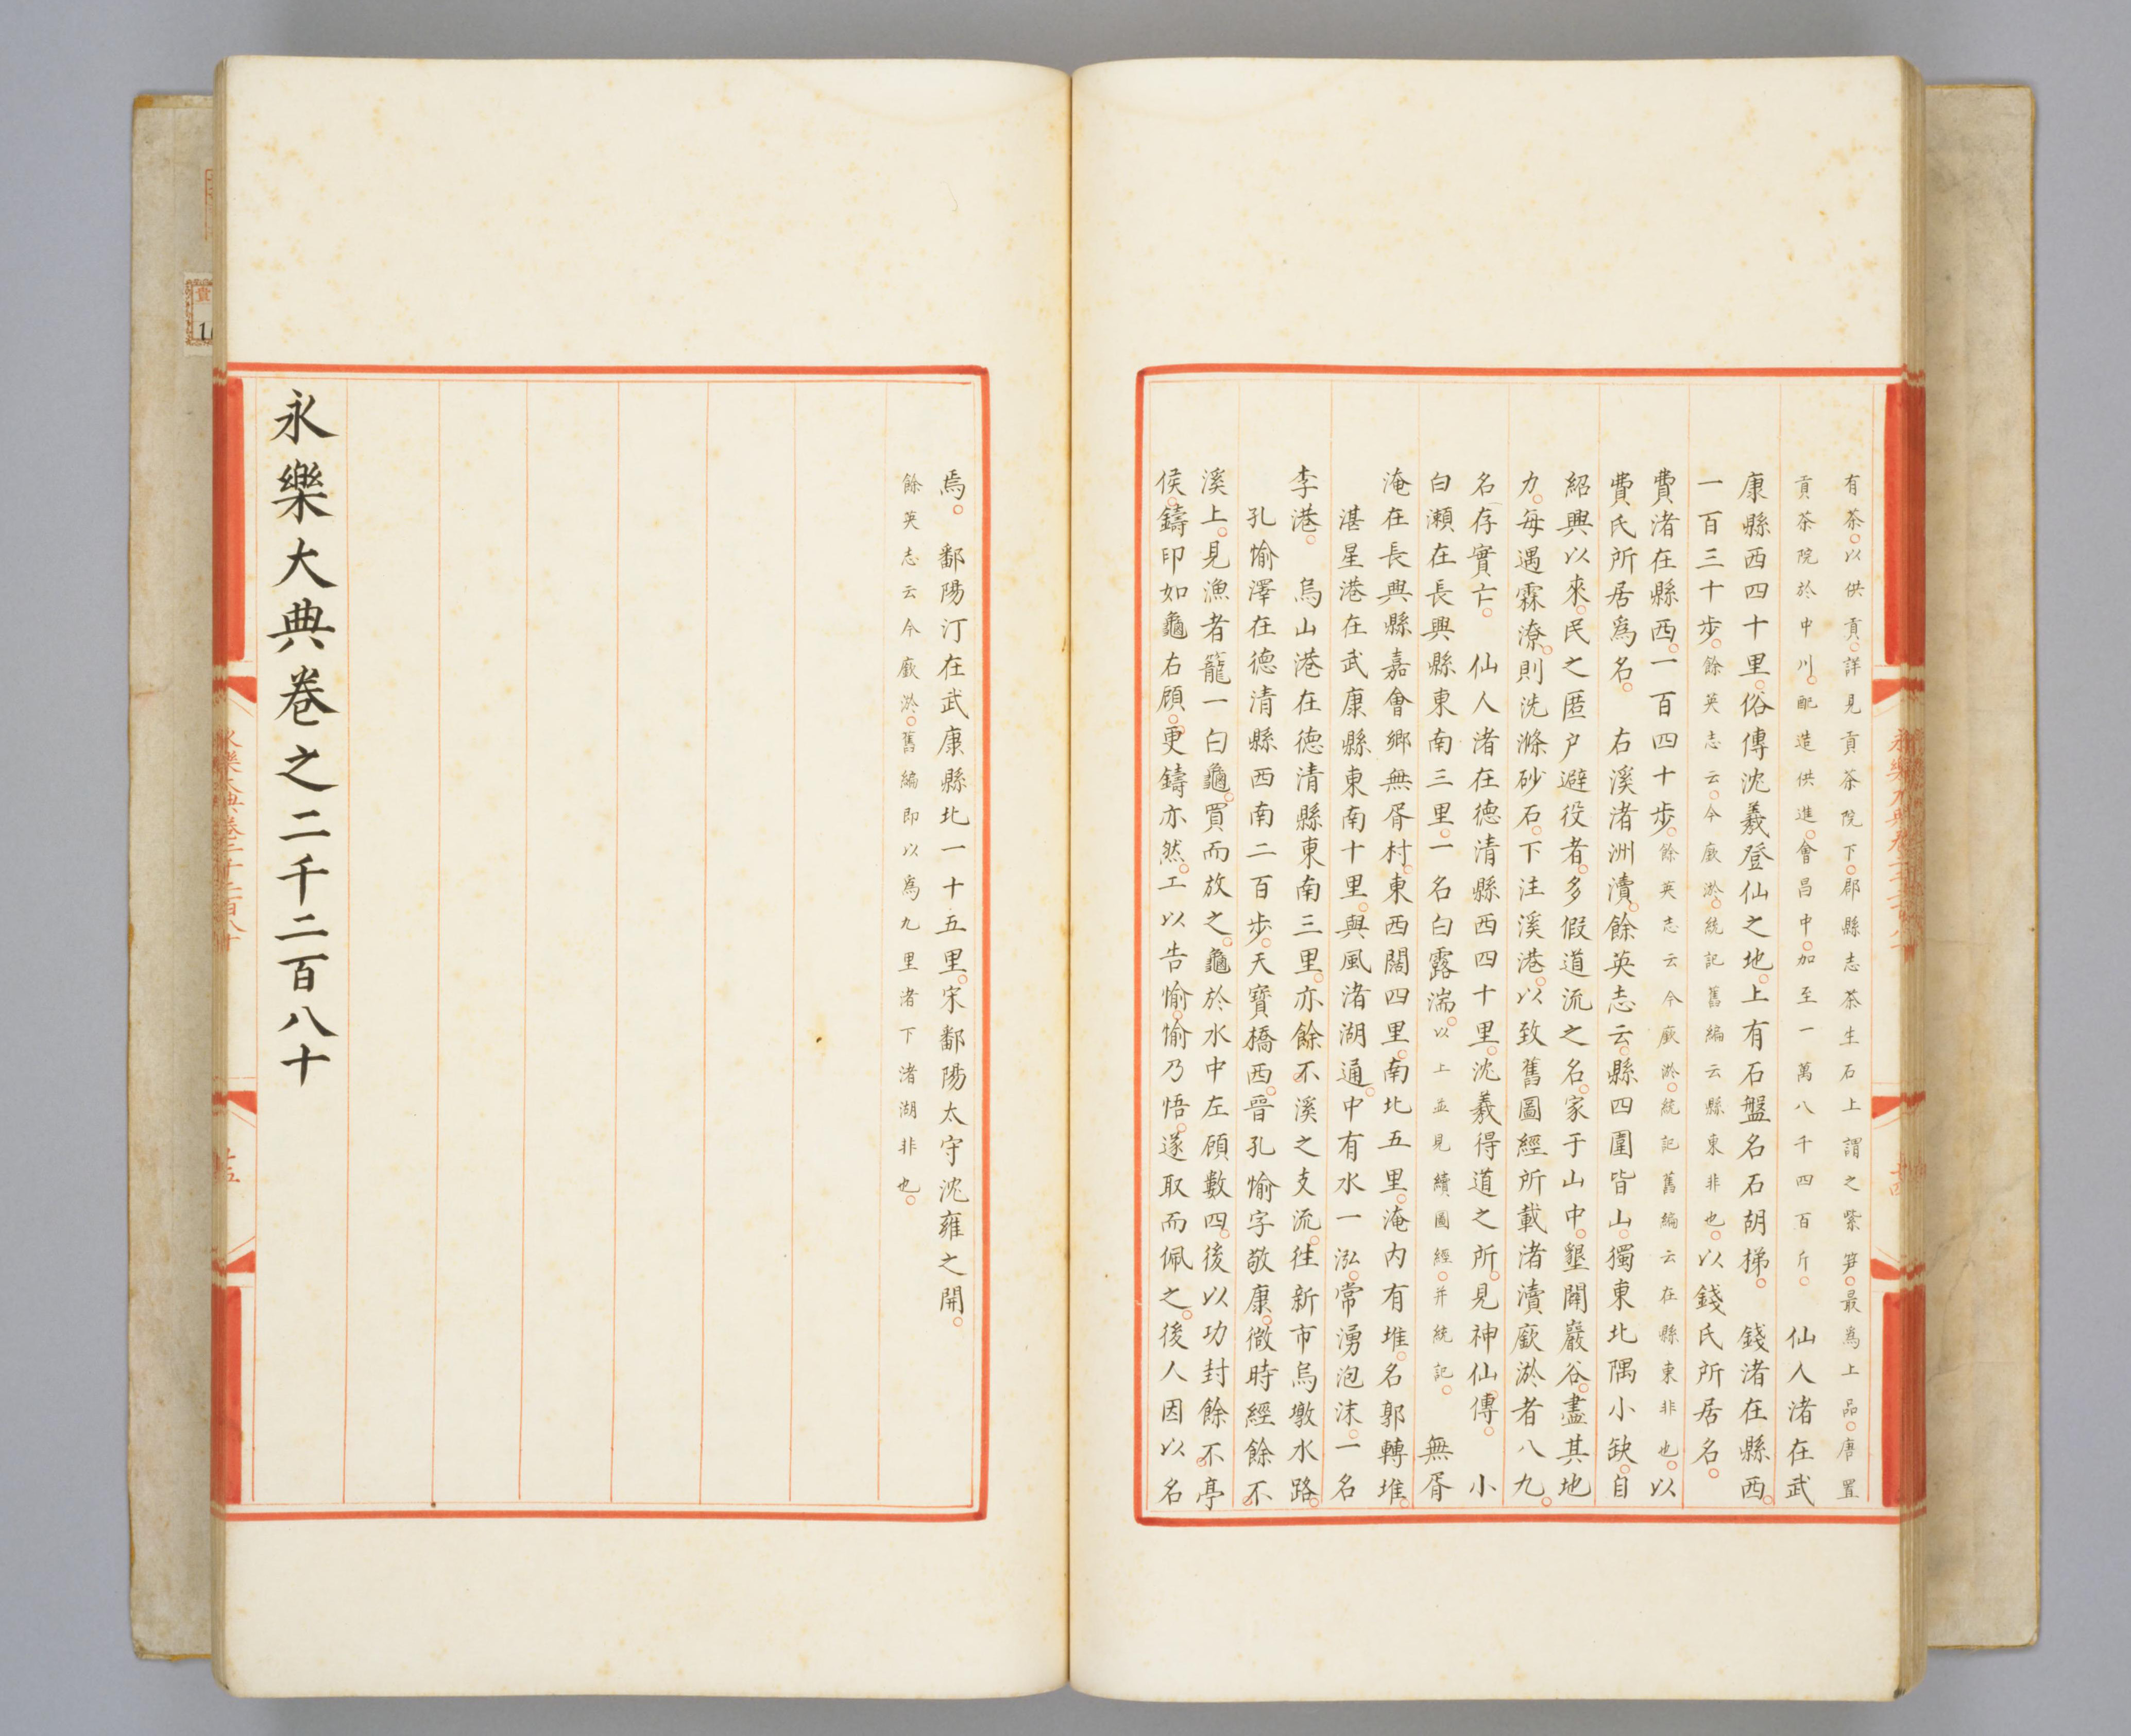 有茶以供貢詳見貢茶院下郡縣志茶生石上謂之紫笋最爲上品唐置
貢茶院於中川配造供進會昌中加至一萬八千四百斤　仙人渚在武
康縣西四十里俗傳沈羲登仙之地上有石盤名石胡梯　錢渚在縣西
一百三十步餘英志云今廢淤統記舊編云縣東非也以錢氏所居名
費渚在縣西一百四十步餘英志云今廢淤統記舊編云在縣東非也以
費氏所居爲名　右溪渚洲瀆餘英志云縣四圍皆山獨東北隅小缺自
紹興以來民之匿户避役者多假道流之名家于山中墾闢巖谷盡其地
力每遇霖潦則洗滌砂石下注溪港以致舊圖經所載渚瀆廢淤者八九
名存實亡　仙人渚在德清縣西四十里沈羲得道之所見神仙傳　小
白瀬在長興縣東南三里一名白露湍以上並見續圖經并統記　無胥
淹在長興縣嘉會鄉無胥村東西闊四里南北五里淹内有堆名郭轉堆
湛星港在武康縣東南十里與風渚湖通中有水一泓常湧泡沫一名
李港　烏山港在德清縣東南三里亦餘不溪之支流徃新市烏墩水路
孔愉澤在德清縣西南二百步天寶橋西晉孔愉字敬康微時經餘不
溪上見漁者籠一白龜買而放之龜於水中左顧數四後以功封餘不亭
侯鑄印如龜右顧更鑄亦然工以告愉愉乃悟遂取而佩之後人因以名
焉　鄱陽汀在武康縣北一十五里宋鄱陽太守沈雍之開
餘英志云今廢淤舊編即以爲九里渚下渚湖非也
永樂大典卷之二千二百八十
永樂大典卷二千二百八十
十五
十四